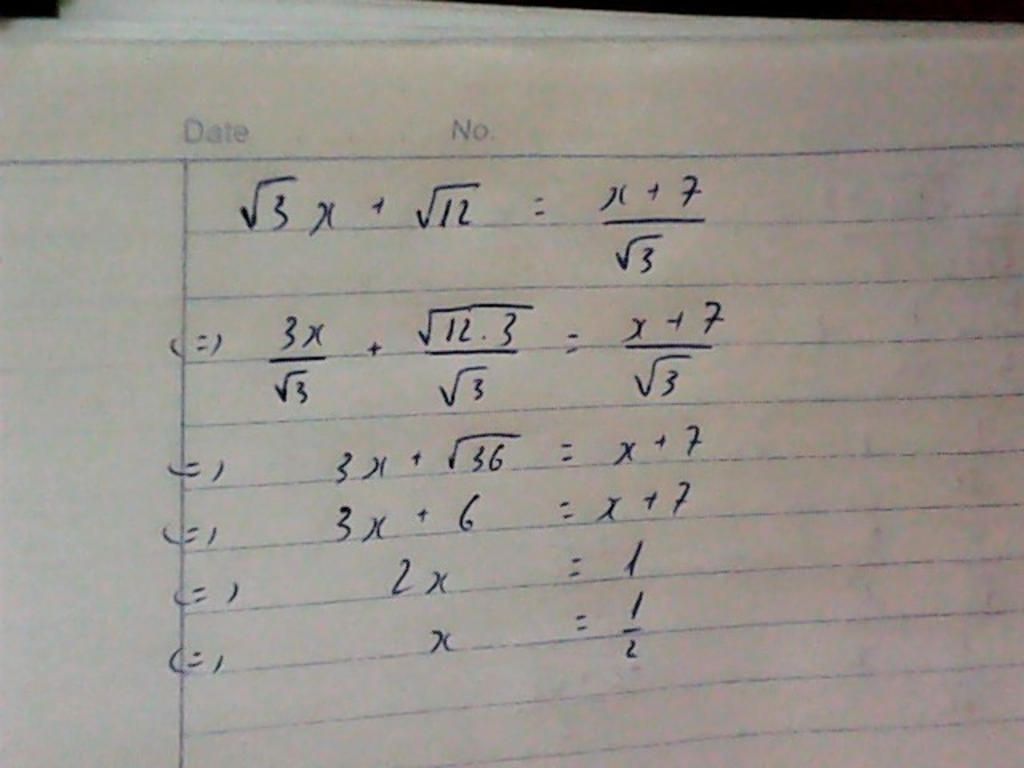 Date No.
√3 x + √12 = (x + 7)/√3
<=> 3x/√3 + √(12 . 3)/√3 = (x + 7)/√3
<=> 3x + √36 = x + 7
<=> 3x + 6 = x + 7
<=> 2x = 1
<=> x = 1/2